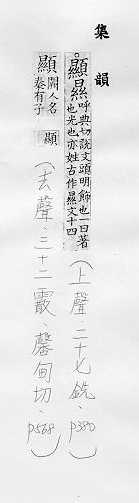 集韻
顯㬎呼典切說文頭明飾也一曰著
也光也亦姓古作㬎文十四
(上聲、二十七銑、p380)
顯闕人名
秦有子顯
(去聲、三十二霰、馨甸切、p568)